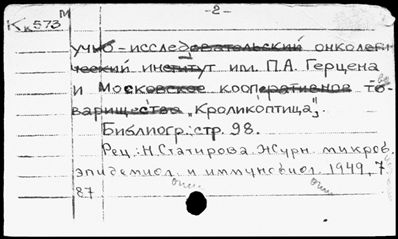 М -2-
Кк573
учно-исследовательский онкологи-
ческий институт им. П.А. Герцена
и Московское кооперативное то-
варищество „Кроликоптица".
Библиогр.: стр. 98.
Рец.: Н. Статирова. Журн. микров.
эпидемиол. и иммуновиол. 1949, 7
87